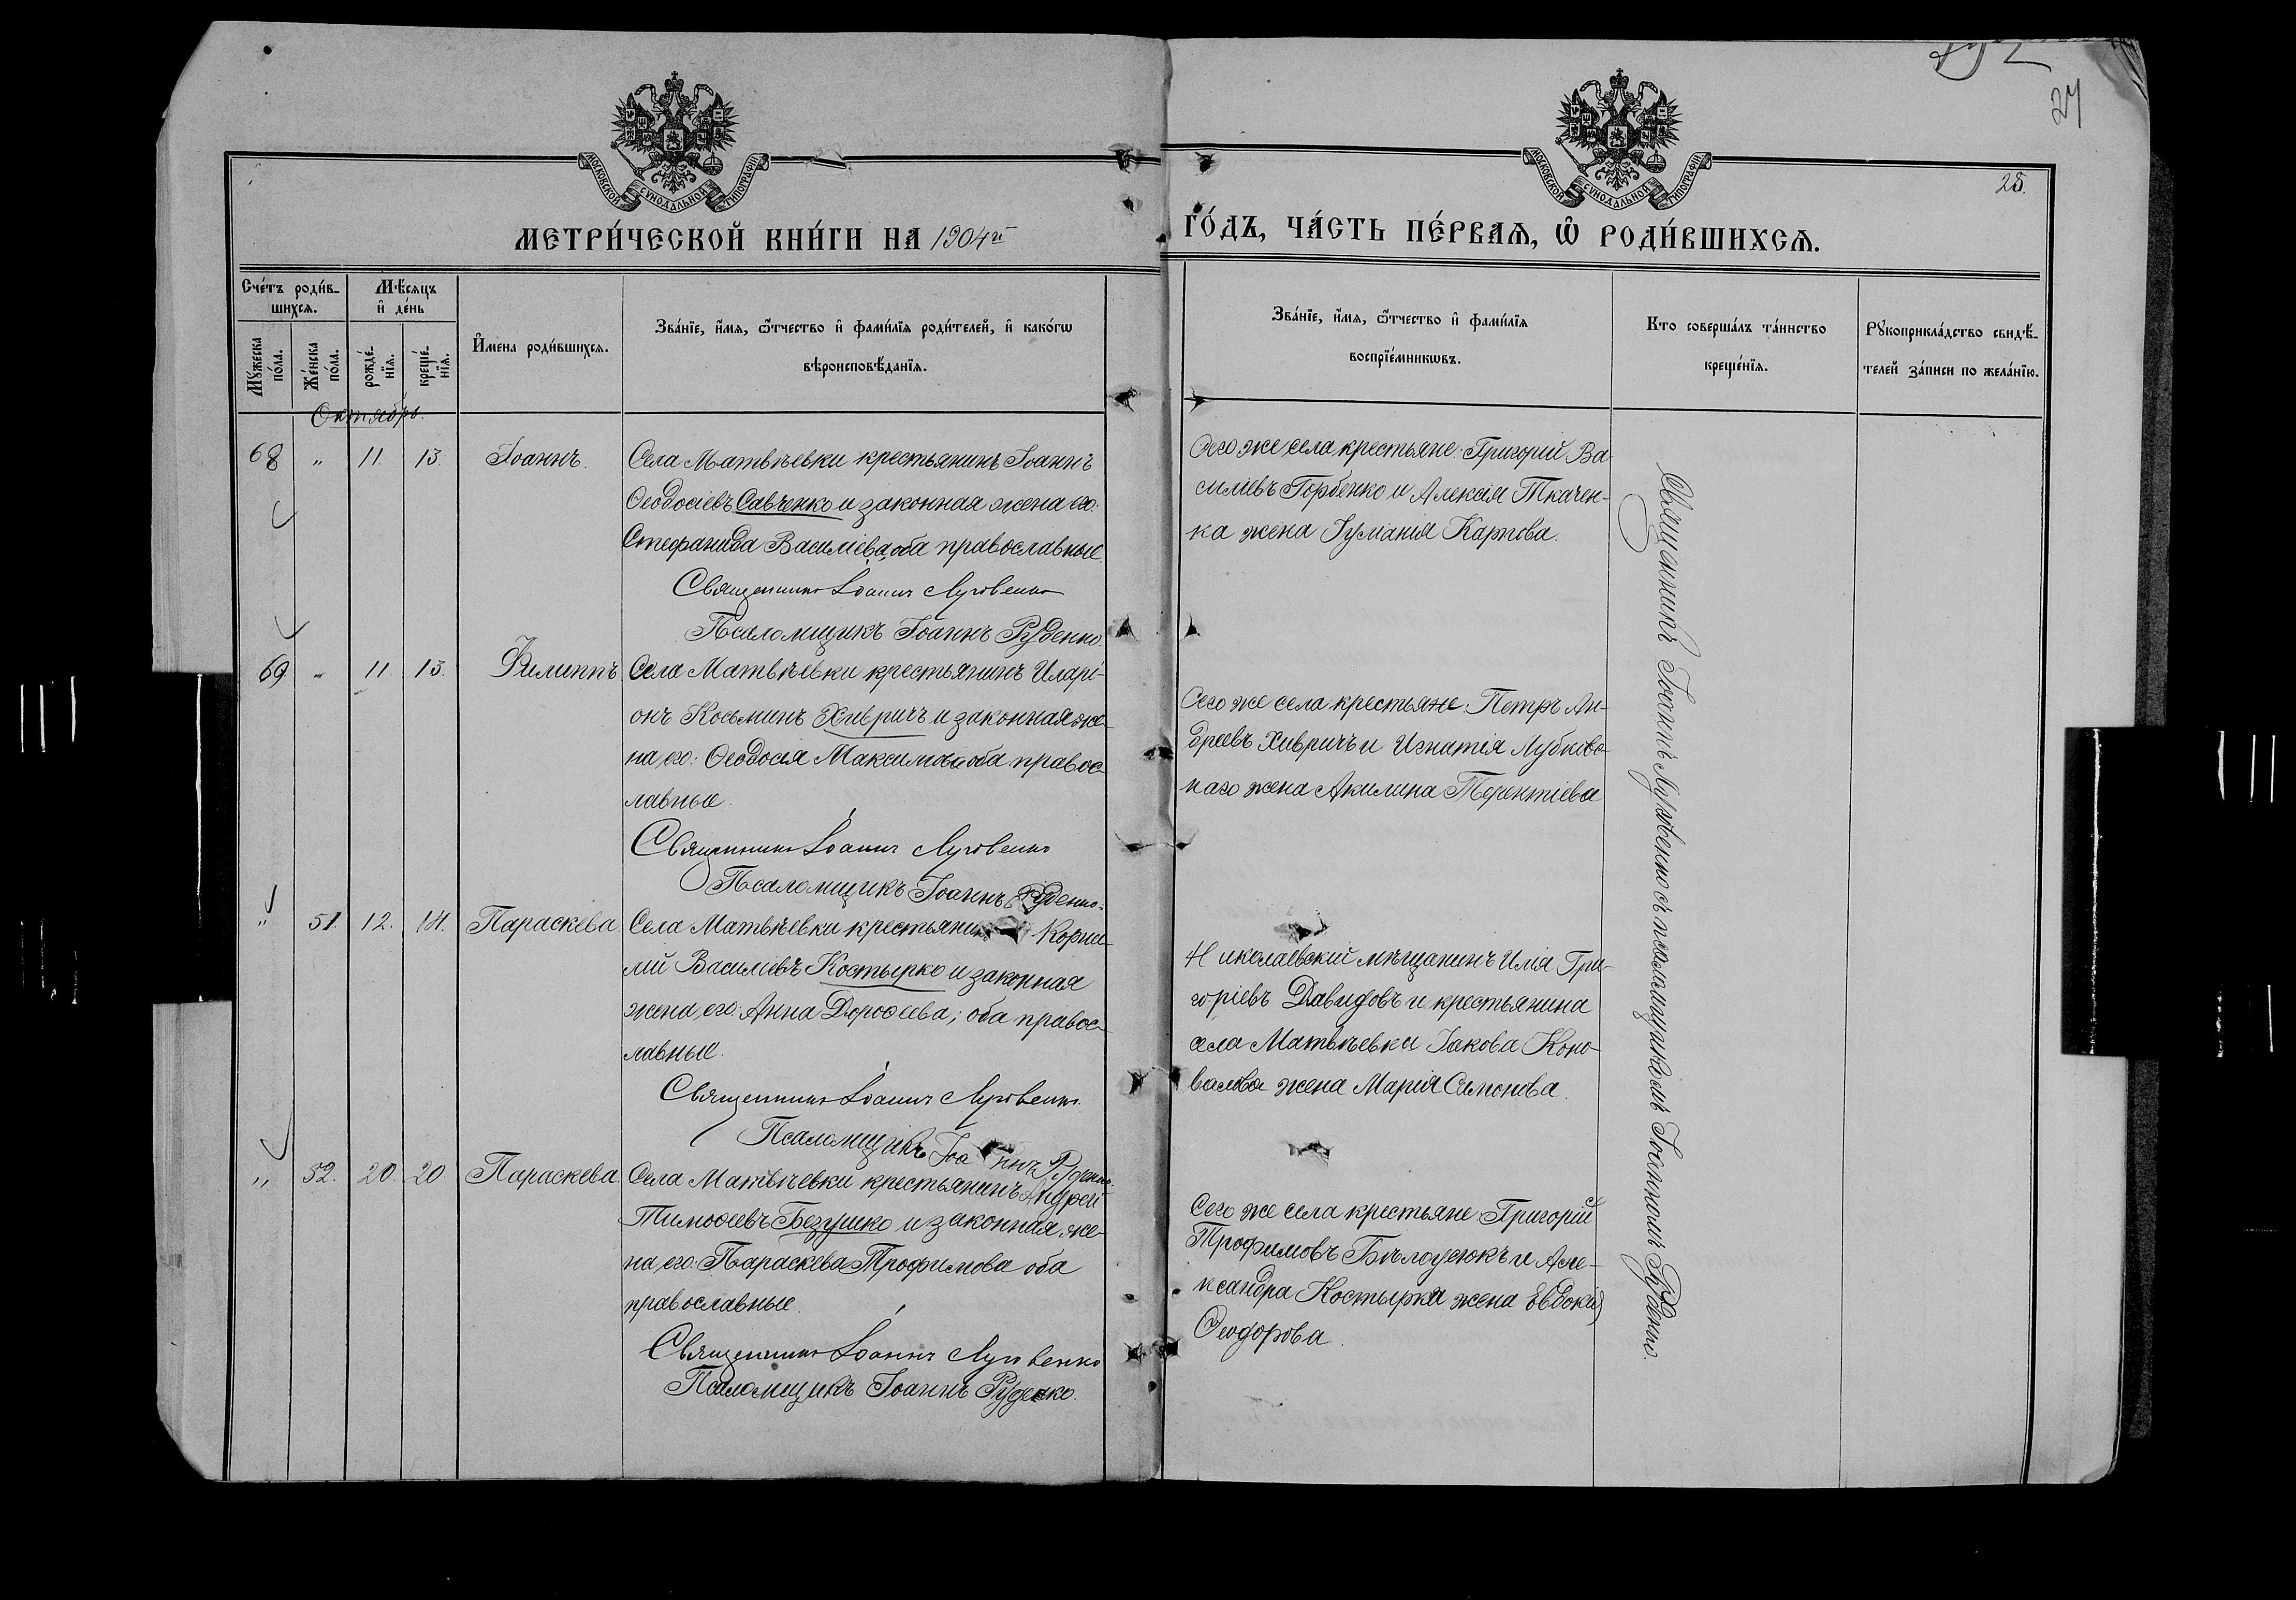 27
25.
МОСКОВСКОЙ СѴНОДАЛЬНОЙ ТИПОГРАФІИ
МОСКОВСКОЙ СѴНОДАЛЬНОЙ ТИПОГРАФІИ
МЕТРИ́ЧЕСКОЙ КНИ́ГИ НА 1904й
ГО́ДЪ, ЧА́СТЬ ПЕ́РВАѦ, Ѡ РОДИ́ВШИХСѦ.
Сче́тъ роди́в-
шихсѧ.
Мꙋ́жеска
по́ла.
Же́нска
по́ла.
Мѣ́сѧцъ
и҆ де́нь
рожде́-
нїѧ.
креще́-
нїѧ.
И҆́мена роди́вшихсѧ.
Зва́нїе, и҆́мѧ, ѻ҆́тчество и҆ фами́лїѧ роди́телей, и҆ како́гѡ
вѣроисповѣ́данїѧ.
Зва́нїе, и҆́мѧ, ѻ҆́тчество и҆ фами́лїѧ
воспрїе́мникѡвъ.
Кто соверша́лъ та́инство
креще́нїѧ.
Рꙋкоприкла́дство свидѣ́-
телей за́писи по жела́нїю.
Октябрь.
68 " 11. 13. Іоаннъ.
Села Матвѣевки крестьянинъ Іоаннъ
Ѳеодосіевъ Савченко и законная жена его:
Стефанида Василіева, оба православные
Священникъ Іоаннъ Луговенко
Псаломщикъ Іоаннъ Руденко.
Сего же села крестьяне: Григорій Ва-
силіевъ Горбенко и Алексія Ткачен-
ка жена Іуліанія Карпова.
69. " 11. 13. Филиппъ
Села Матвѣевки крестьянинъ Иларі-
онъ Косьминъ Хивричъ и законная же-
на его: Ѳеодосія Максимова оба правос-
лавные.
Священникъ Іоаннъ Луговенко
Псаломщикъ Іоаннъ Руденко.
Сего же села крестьяне: Петръ Ан-
дреевъ Хивричъ и Игнатія
жена Акилина Терентіева
" 51. 12. 14. Параскева.
Села Матвѣевки Корни-
лій Василіевъ Костырко и законная
жена его: Анна Дороѳеева; оба правос-
лавные.
Священникъ Іоаннъ Луговенко.
Псаломщикъ Іоаннъ Руденко.
Николаевскій мѣщанинъ Илія Гри-
горіевъ Давидовъ и крестьянина
села Матвѣевки Іакова Коно-
валова жена Марія Симонова.
" 52. 20. 20. Параскева.
Села Матвѣевки крестьянинъ Андрей
Тимоѳеевъ Безушко и законная же-
на его: Параскева Трофимова оба
православные.
Священникъ Іоаннъ Луговенко
Псаломщикъ Іоаннъ Руденко.
Сего же села крестьяне: Григорій
Трофимовъ Бѣлоусюкъ и Але-
ксандра Костырка жена Евдокія
Ѳеодорова.
Священникъ Іоаннъ Луговенко съ псаломщикомъ Іоанномъ Руденко.